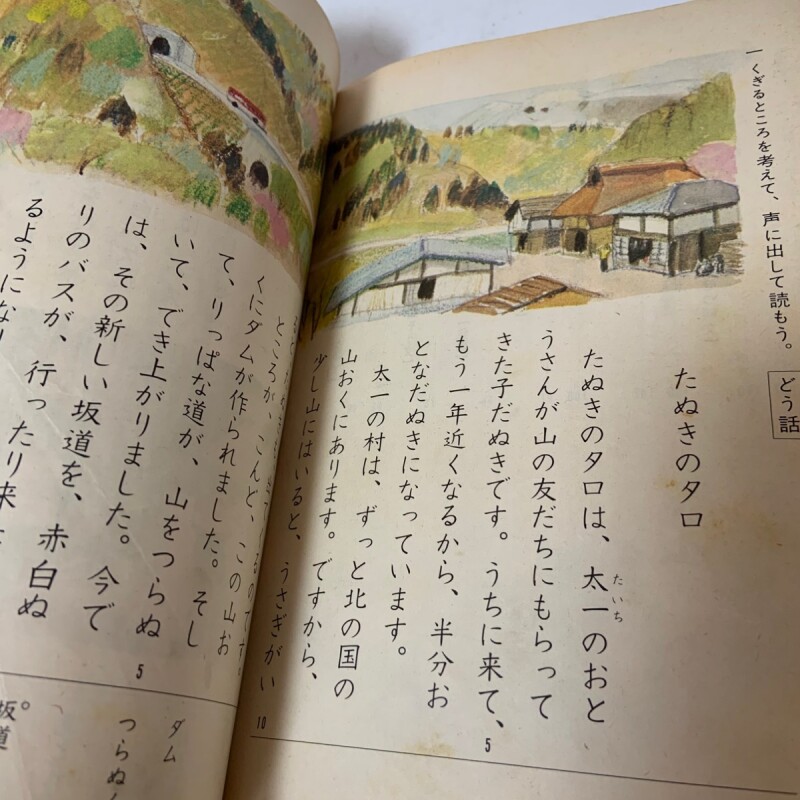 一 くぎるところを考えて、声に出して読もう。
どう話
たぬきのタロ
たぬきのタロは、太一のおと
たいち
うさんが山の友だちにもらって
きた子だぬきです。うちに来て、
5
もう一年近くなるから、半分お
となだぬきになっています。
太一の村は、ずっと北の国の
山おくにあります。ですから、
少し山にはいると、うさぎがい
10
ところが、こんど、この山お
くにダムが作られました。そし
て、りっぱな道が、山をつらぬ
いて、でき上がりました。今で
5
は、その新しい坂道を、赤白ぬ
りのバスが、行ったり来
るようになり
ダム
つらぬ
坂道